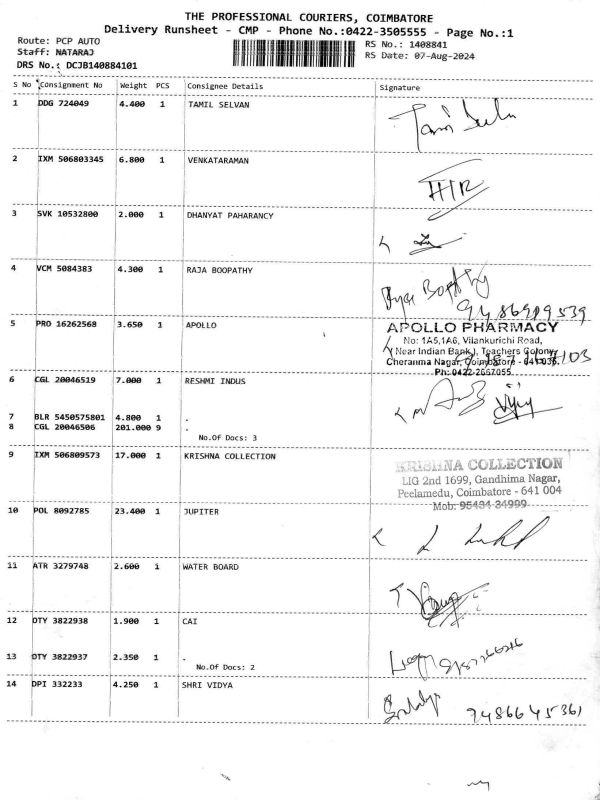 THE PROFESSIONAL COURIERS, COIMBATORE
Delivery Runsheet - CMP - Phone No.:0422-3505555 - Page No.:1
Route: PCP AUTO
RS No.: 1408841
Staff: NATARAJ
RS Date: 07-Aug-2024
DRS No.: DCJB140884101
S No Consignment No Weight PCS Consignee Details Signature
1 DDG 724049 4.400 1 TAMIL SELVAN
2 IXM 506803345 6.800 1 VENKATARAMAN
3 SVK 10532800 2.000 1 DHANYAT PAHARANCY
4 VCM 5084383 4.300 1 RAJA BOOPATHY
Boopathy
9486919539
5 PRO 16262568 3.650 1 APOLLO
APOLLO PHARMACY
No: 1A5,1A6, Vilankurichi Road,
(Near Indian Bank), Teachers Colony,
Cheranma Nagar, Coimbatore - 641 035.
Ph: 0422-2667055
6 CGL 20046519 7.000 1 RESHMI INDUS
Vijay
7 BLR 5450575801 4.800 1 .
8 CGL 20046506 201.000 9 .
No.Of Docs: 3
9 IXM 506809573 17.000 1 KRISHNA COLLECTION
KRISHNA COLLECTION
LIG 2nd 1699, Gandhima Nagar,
Peelamedu, Coimbatore - 641 004
Mob: 95434 34999
10 POL 8092785 23.400 1 JUPITER
11 ATR 3279748 2.600 1 WATER BOARD
12 OTY 3822938 1.900 1 CAI
13 OTY 3822937 2.350 1 .
No.Of Docs: 2
14 DPI 332233 4.250 1 SHRI VIDYA
9486645361